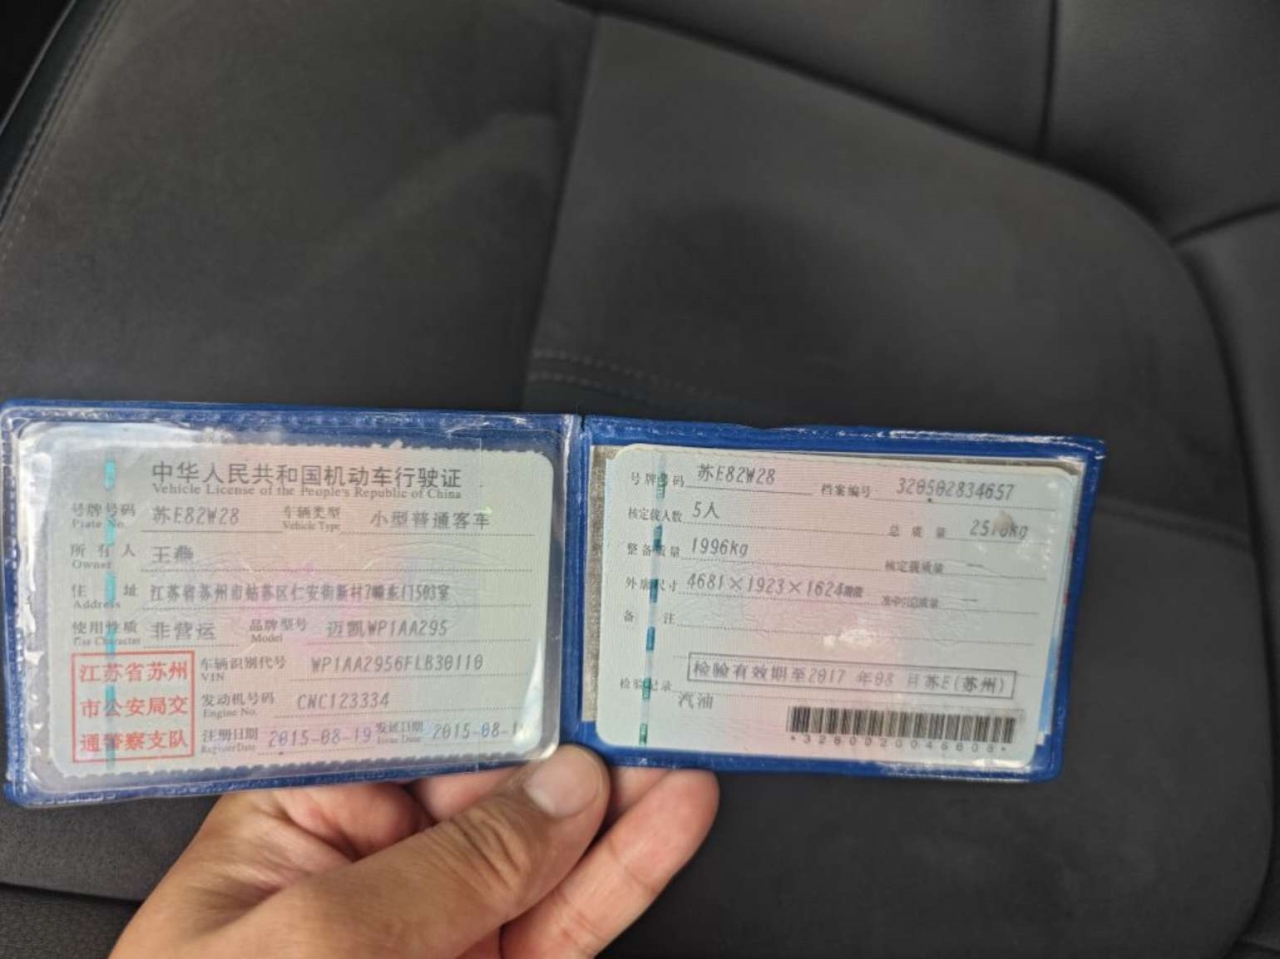 中华人民共和国机动车行驶证
Vehicle License of the People's Republic of China
号牌号码 苏E82W28 车辆类型 小型普通客车
Plate No. Vehicle Type
所有人 王燕
Owner
住址 江苏省苏州市姑苏区仁安街新村7幢东门503室
Address
使用性质 非营运 品牌型号 迈凯WP1AA295
Use Character Model
江苏省苏州
市公安局交
通警察支队
车辆识别代号 WP1AA2956FLB30110
VIN
发动机号码 CNC123334
Engine No.
注册日期 2015-08-19 发证日期 2015-08-1
Register Date Issue Date
号牌号码 苏E82W28 档案编号 320502834657
核定载人数 5人 总质量
整备质量 1996kg 核定载质量 —
外廓尺寸 4681×1923×1624 —
备注
检验有效期至2017年08月苏E(苏州)
检验记录
汽油
*3280020046808*